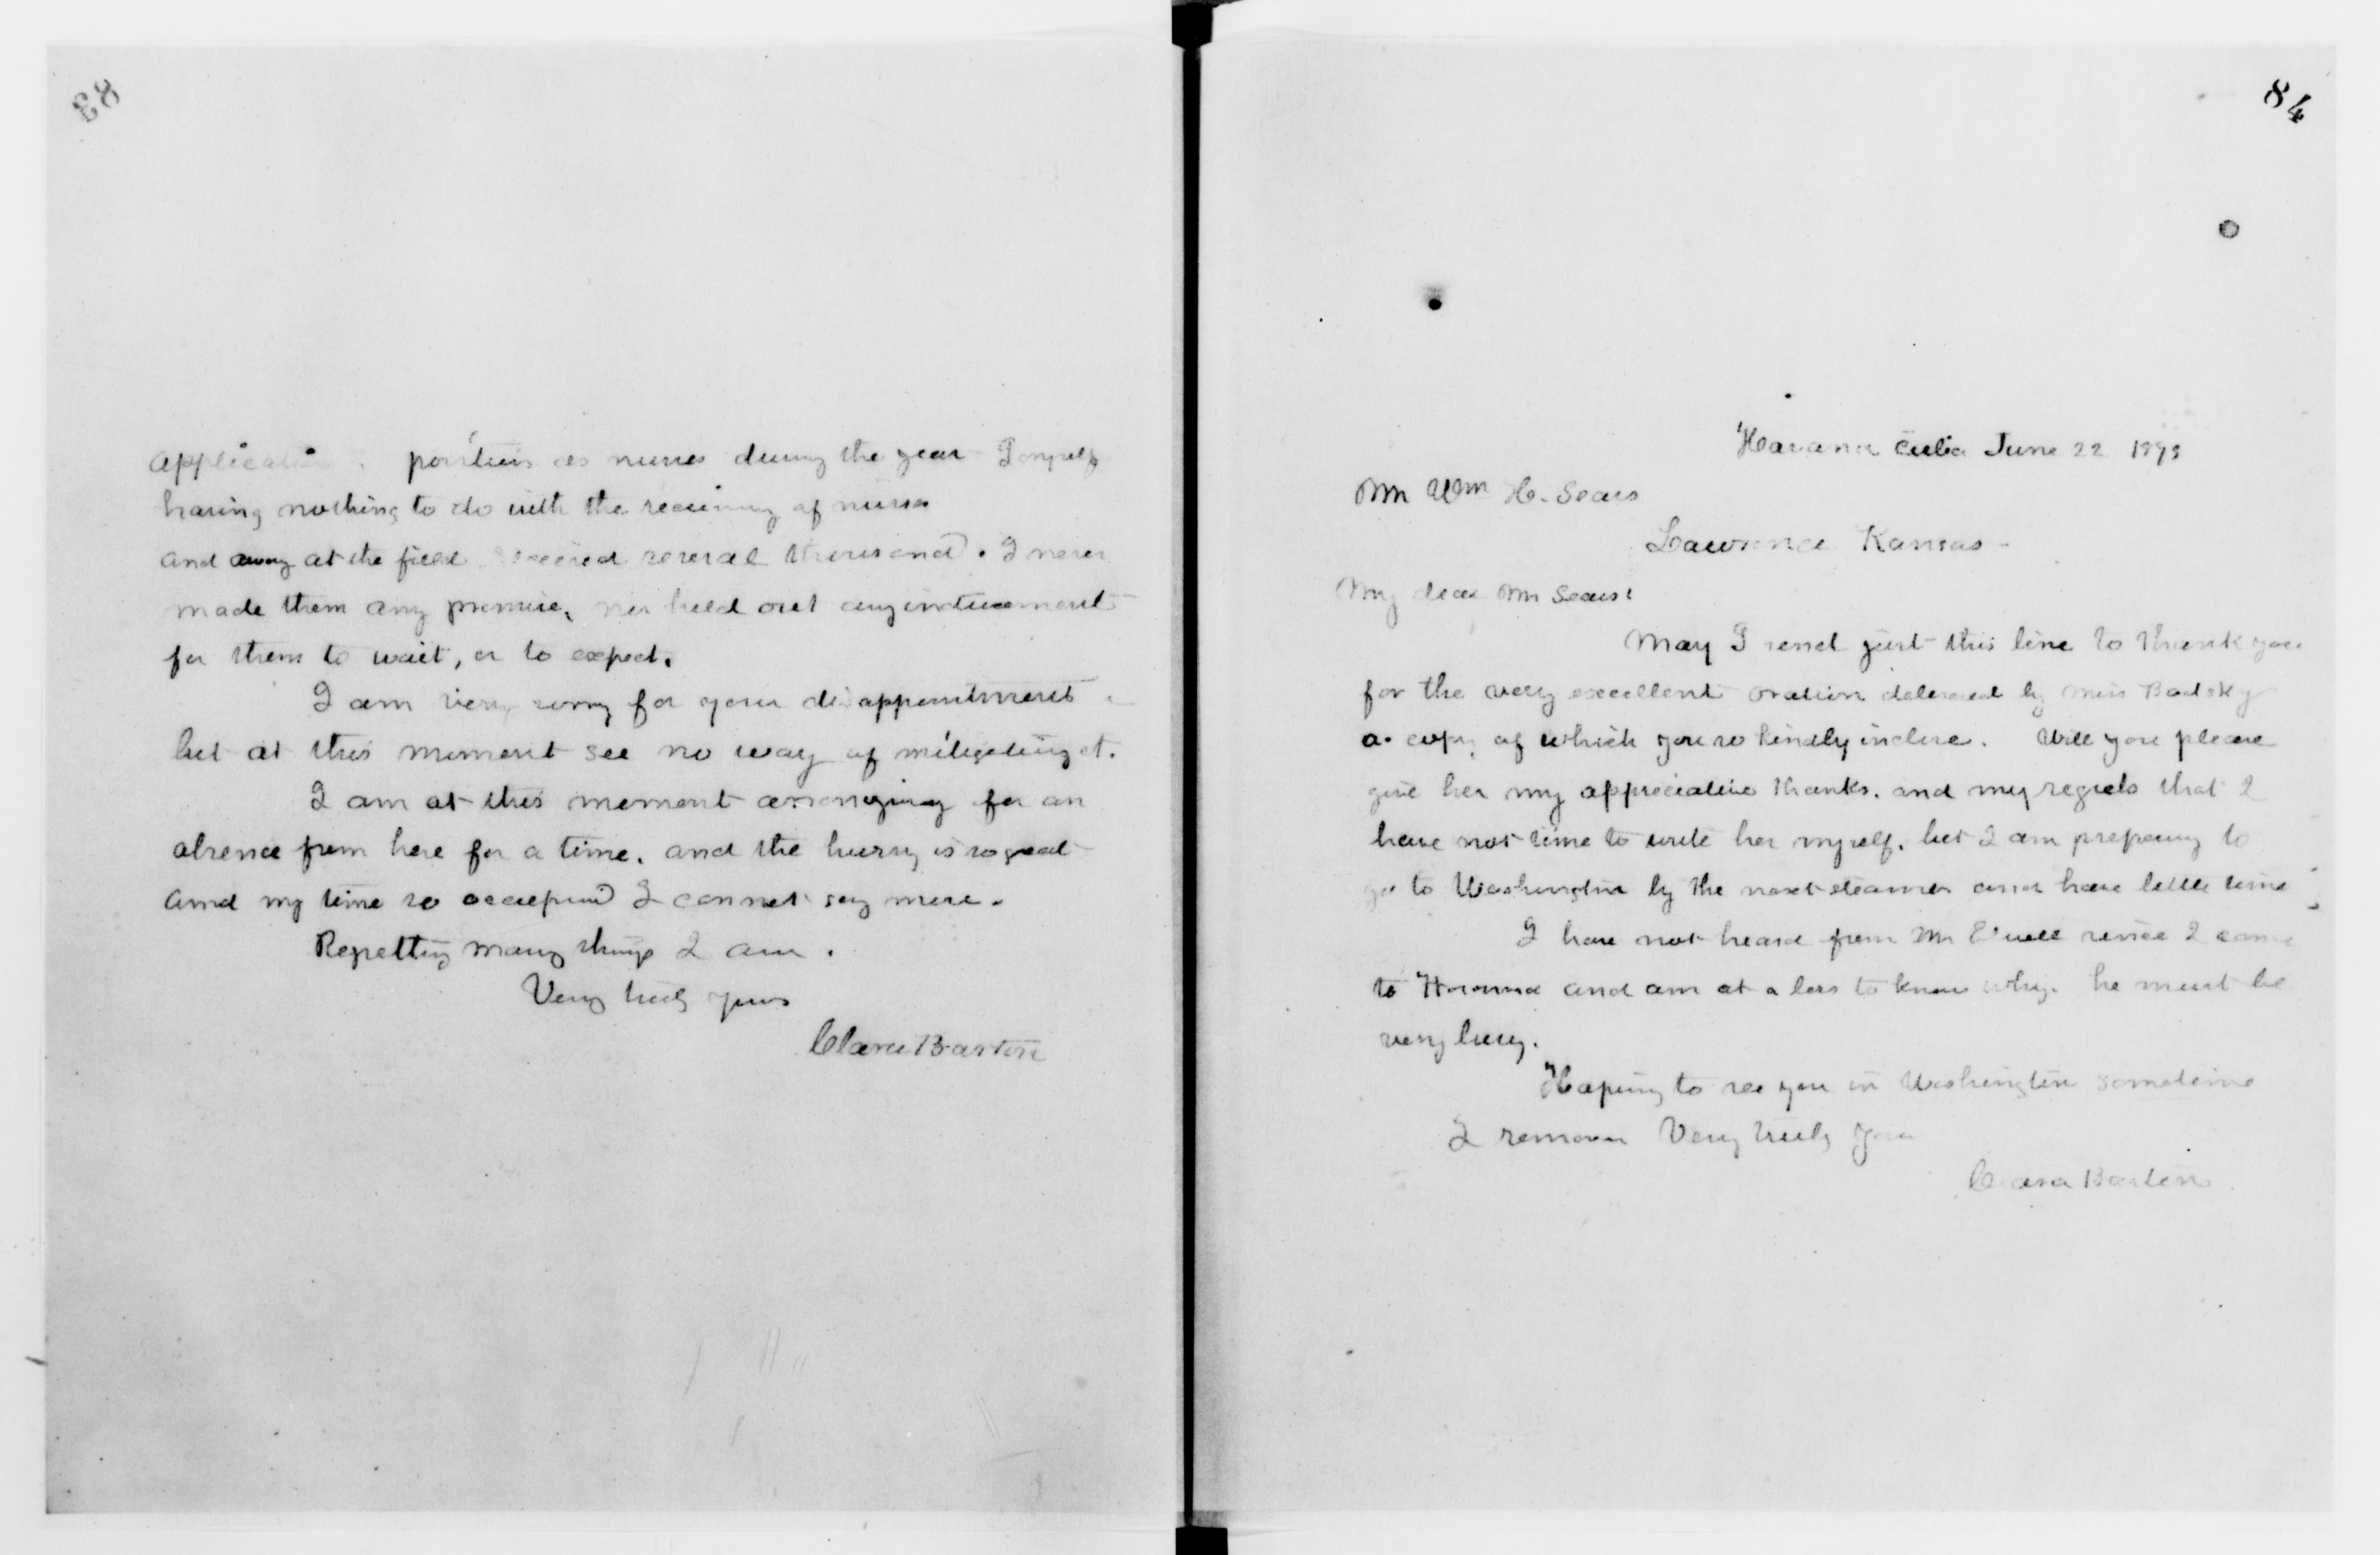 83
application positions as nurses during the year I myself
having nothing to do with the receiving of nurses
and away at the field received several thousand. I never
made them any promise, nor held out any inducement
for them to wait, or to expect.
I am very sorry for your disappointment
but at this moment see no way of mitigating it.
I am at this moment arranging for an
absence from here for a time, and the hurry is so great
and my time so occupied I cannot say more.
Regretting many things I am.
Very truly yours
Clara Barton
84
Havana Cuba June 22 1899
Mr Wm H. Sears
Lawrence Kansas -
My dear Mr Sears:
May I send just this line to thank you
for the very excellent oration delivered by Miss
a copy of which you so kindly inclose. Will you please
give her my appreciative thanks. and my regrets that I
have not time to write her myself, but I am preparing to
go to Washington by the next steamer and have little time
I have not heard from Mr since I came
to Havana and am at a loss to know why. he must be
very busy.
Hoping to see you in Washington sometime
I remain Very truly yours
Clara Barton